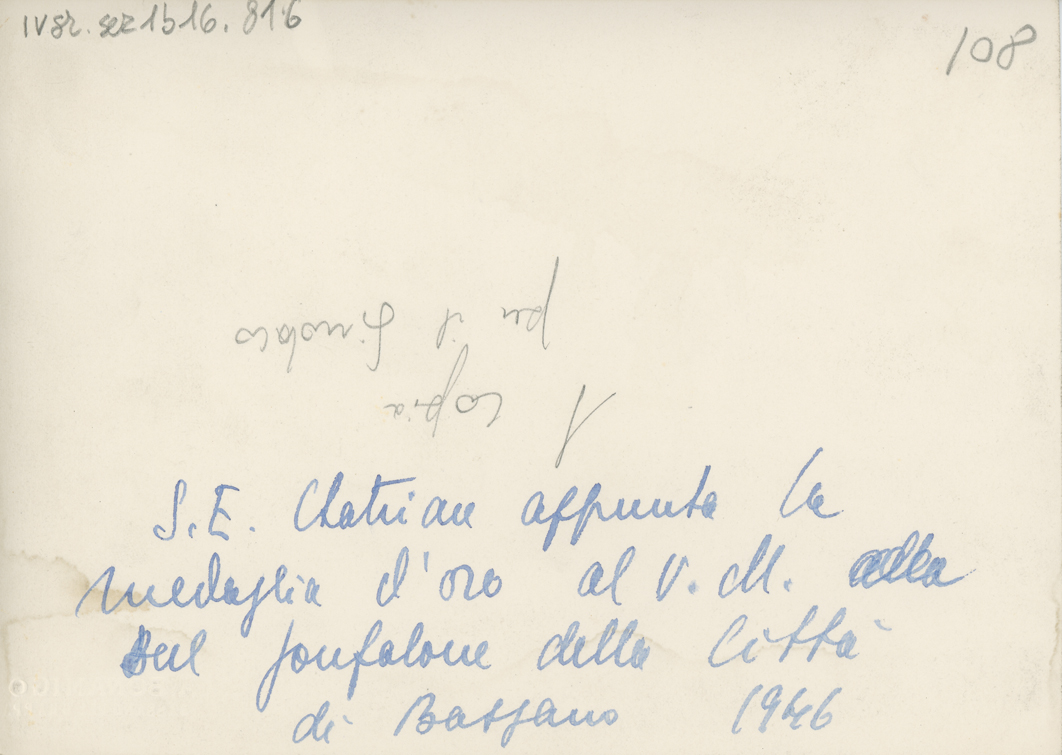 IV sr. sez 1b16. 816
108
1 copia
per il Sindaco
S.E. Chatrian appunta la
medaglia d'oro al V. M. alla
sul gonfalone della Città
di Bassano 1946